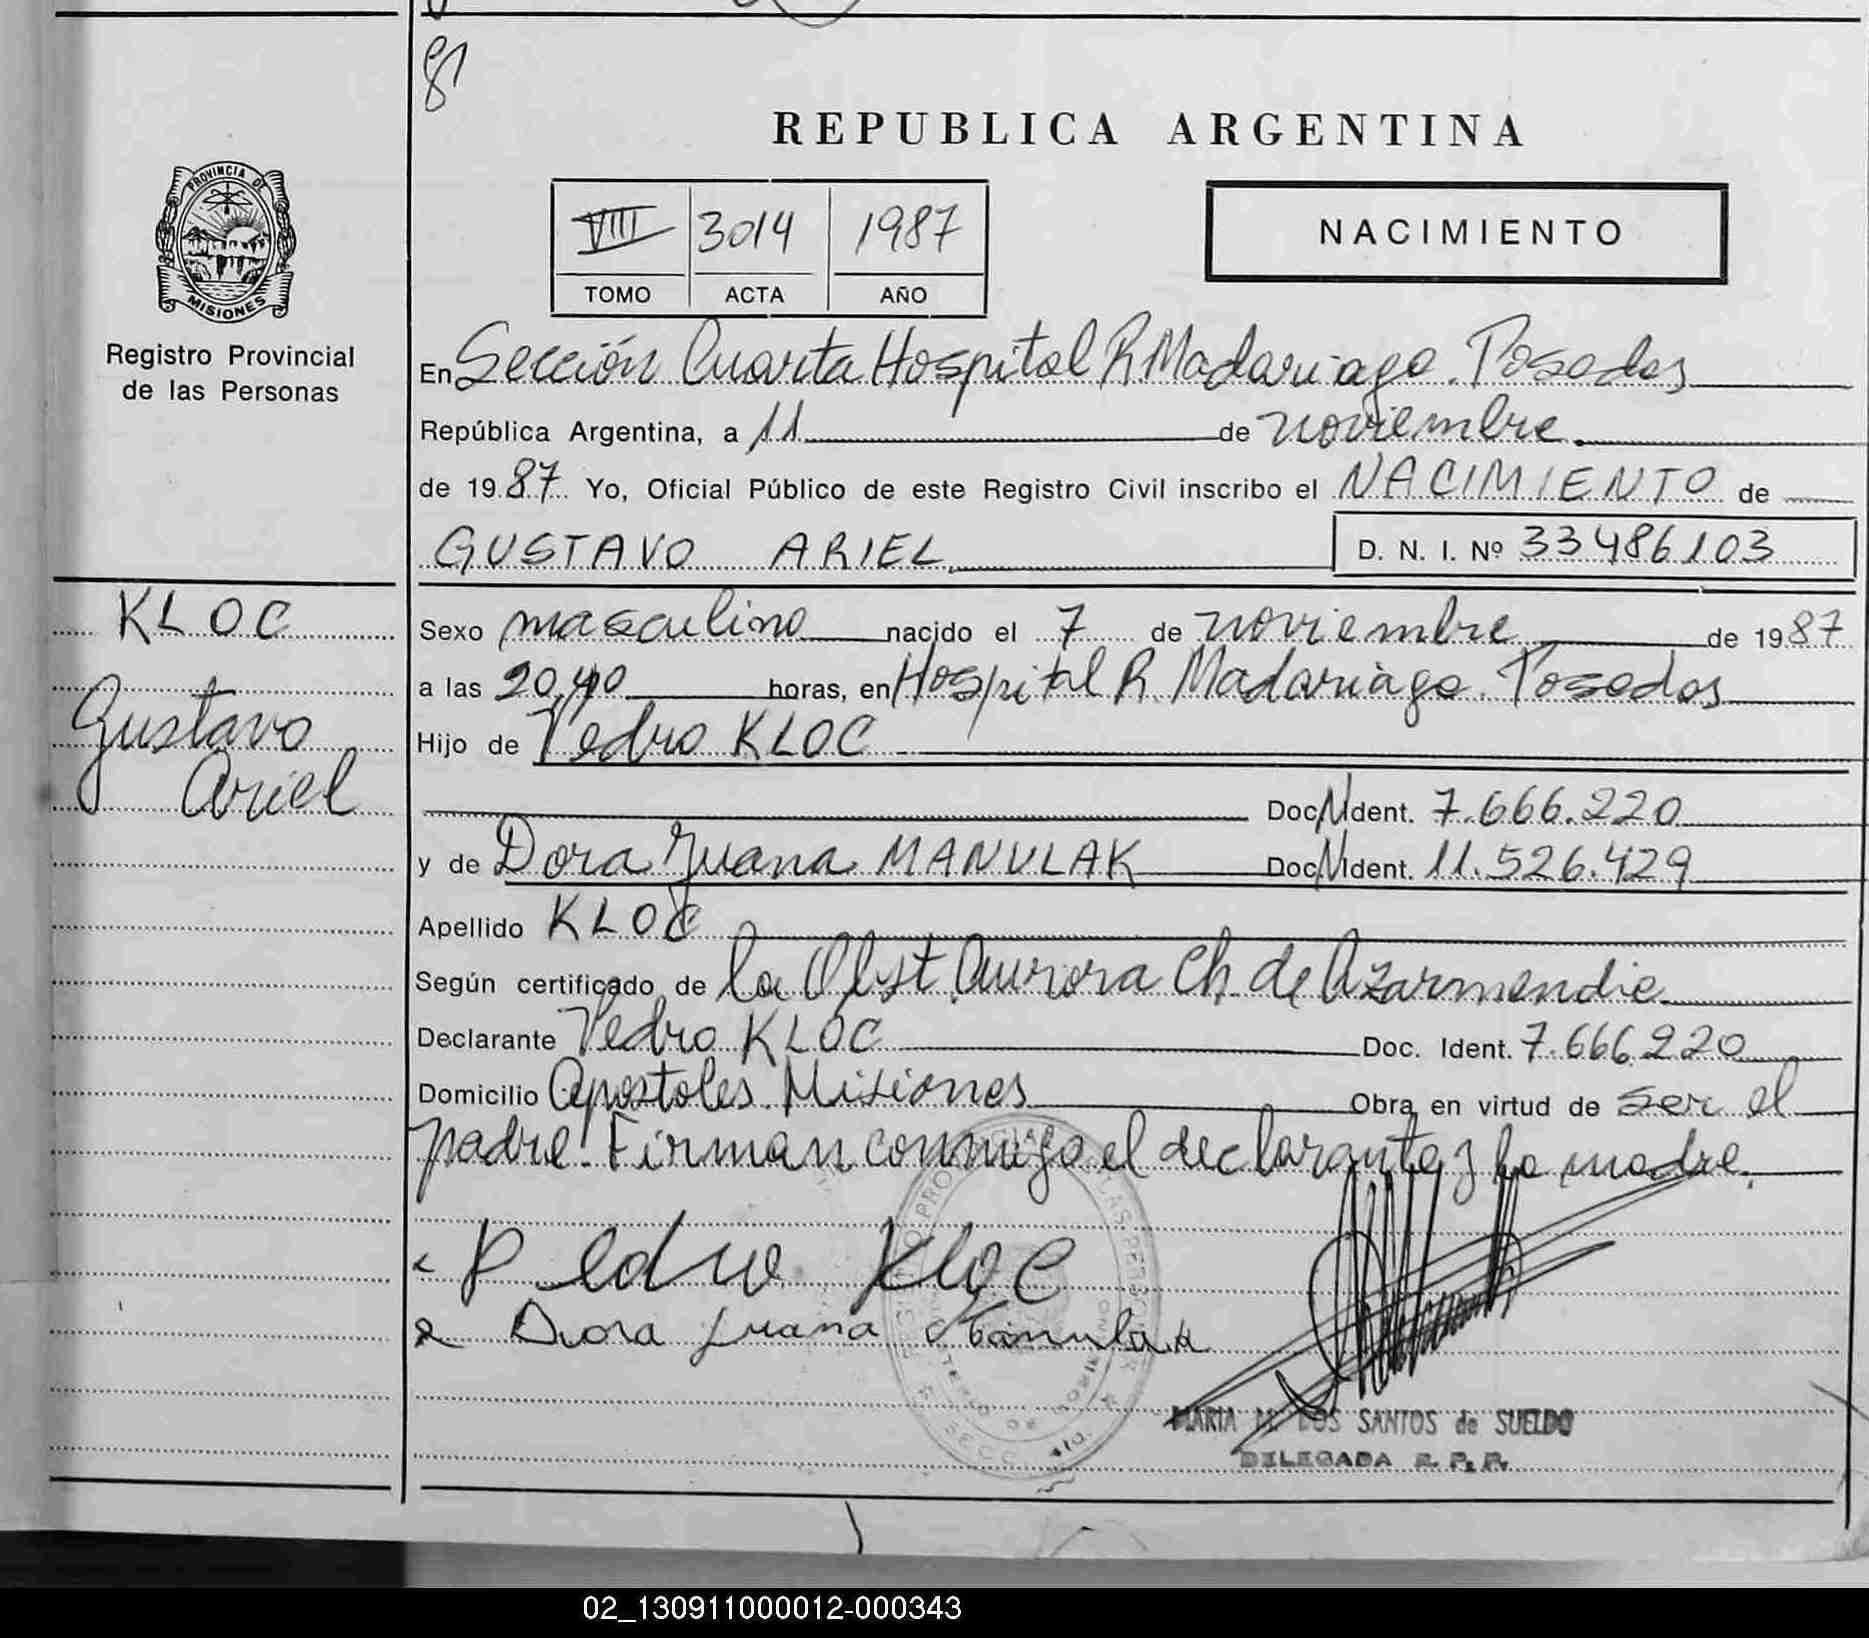 REPUBLICA ARGENTINA
PROVINCIA DE
MISIONES
Registro Provincial
de las Personas
VIII 3014 1987
TOMO ACTA AÑO
NACIMIENTO
En Sección Cuarta Hospital R. Madariaga. Posadas
República Argentina, a 11 de noviembre
de 1987 Yo, Oficial Público de este Registro Civil inscribo el NACIMIENTO de
GUSTAVO ARIEL
D. N. I. Nº 33486103
KLOC
Gustavo
Ariel
Sexo masculino nacido el 7 de noviembre de 1987
a las 20,40 horas, en Hospital R. Madariaga. Posadas
Hijo de Pedro KLOC
Doc. N Ident. 7.666.220
y de Dora Juana MANULAK Doc. N Ident. 11.526.429
Apellido KLOC
Según certificado de la Obst. Aurora Ch. de Azarmendia
Declarante Pedro KLOC Doc. Ident. 7.666.220
Domicilio Apostoles. Misiones Obra en virtud de ser el
padre. Firman conmigo el declarante y la madre.
Pedro Kloc
Dora Juana Manulak
MARIA M. LOS SANTOS de SUELDO
DELEGADA R. P. P.
02_130911000012-000343